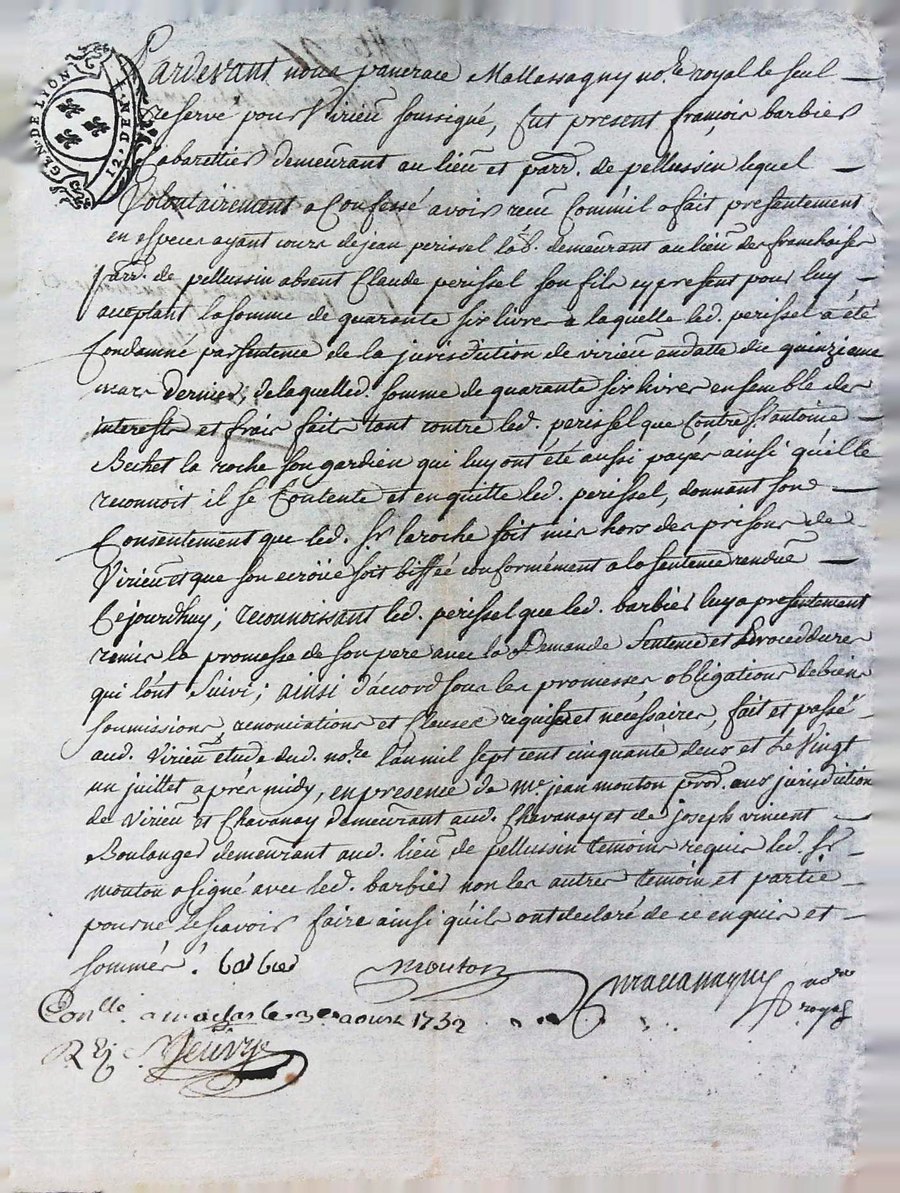 GEN. DE LYON
12. DE
Pardevant nous pancrace Mallassagny no.re royal le seul
reservé pour Virieu soussigné, fut present françois barbier
Cabaretier demeurant au lieu et parr. de pellussin lequel
Volontairement a Confessé avoir reçu Comm'il a fait presentement
en especes ayant cours de jean perissel lab.r demeurant au lieu des franchises
parr. de pellussin absent Claude perissel son fils cy present pour luy
acceptant la somme de quarante six livres a laquelle led. perissel a été
Condamné par sentence de la jurisdiction de virieu en datte du quinzieme
mars dernier; de laquelled. somme de quarante six livres ensemble des
interests et frais faits tant contre led. perissel que Contre Sr. antoine
Bechet la roche son gardien qui luy ont été aussi payés ainsi qu'il le
reconnoit il se Contente et en quitte led. perissel, donnant son
Consentement que led. Sr. laroche soit mis hors des prisons de
Virieu et que son ecroüe soit biffée conformément a la sentence rendue
Cejourdhuy; reconnoissant led. perissel que led. barbier luy a presentement
remis la promesse de son pere avec la Demande Sentence et Proceddures
qui l'ont suivi; ainsi d'accord sous les promesses obligations de biens
soumissions, renonciations et Clauses requises et nécessaires, fait et passé
aud. Virieu etude dud. no.re l'an mil sept cent cinquante deux et Le vingt
un juillet après midy, en presence de Me. jean mouton proc.r aux jurisdictions
de Virieu et Chavanay demeurant aud. Chavanay et de joseph vincent
Boulanger demeurant aud. lieu de pellussin temoins requis led. Sr.
mouton a signé avec led. barbier non les autres témoin et partie
pour ne le scavoir faire ainsi qu'ils ont declaré de ce enquis et
sommés. barbier mouton Mallassagny no.re
royal
Con.lle a maclas le 3e aoust 1752